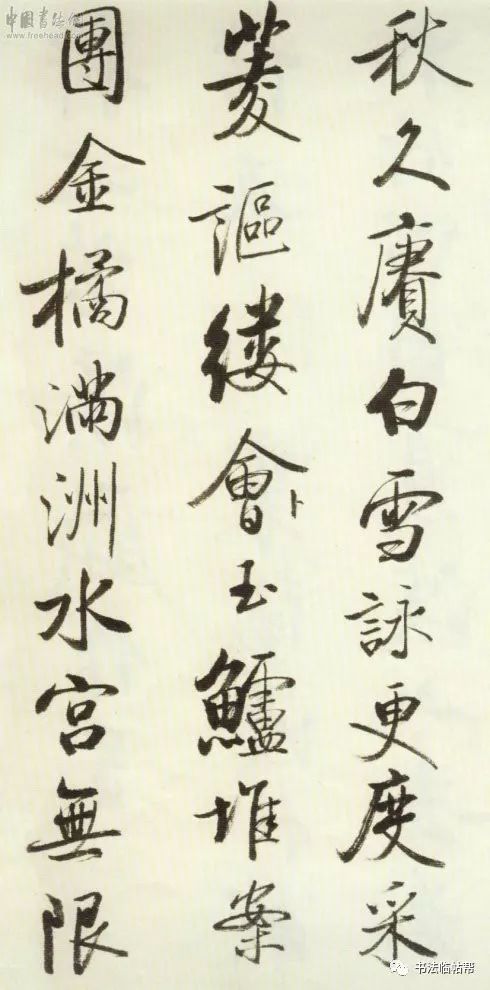 秋久賡白雪詠更度采
菱謳縷會卜玉鱸堆案
團金橘滿洲水宮無限
中國書法網
www.freehead.com
书法临帖帮